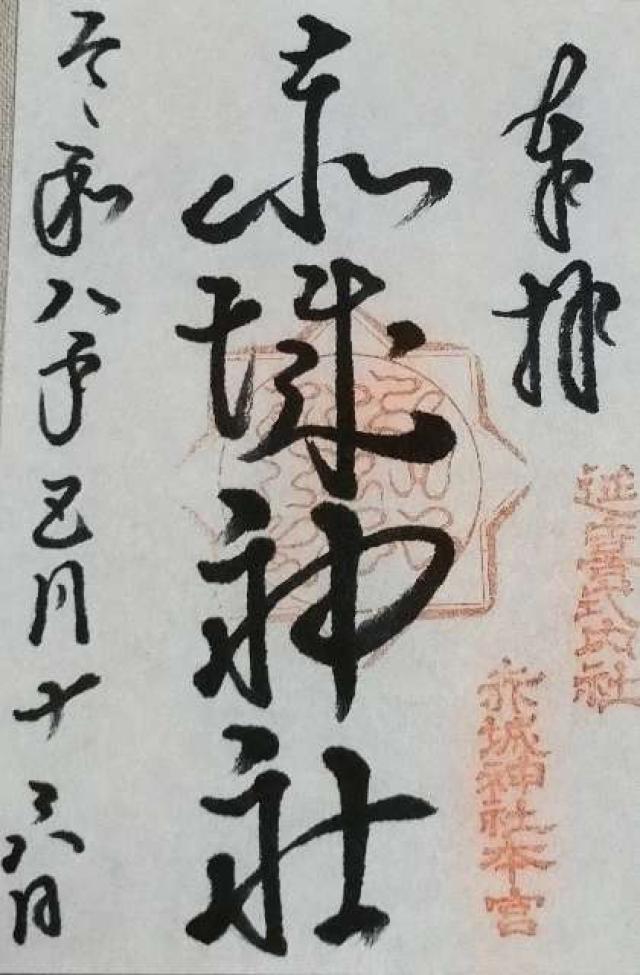 奉拝
延喜式内社
赤城神社本宮
赤城神社
令和八年五月十六日